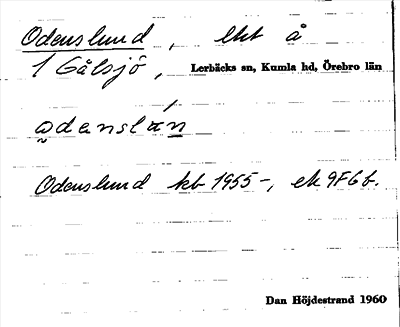 Odenslund, lht å
1 Gålsjö, Lerbäcks sn, Kumla hd, Örebro län
odenslán
Odenslund kb 1955-, ek 9F6f.
Dan Höjdestrand 1960